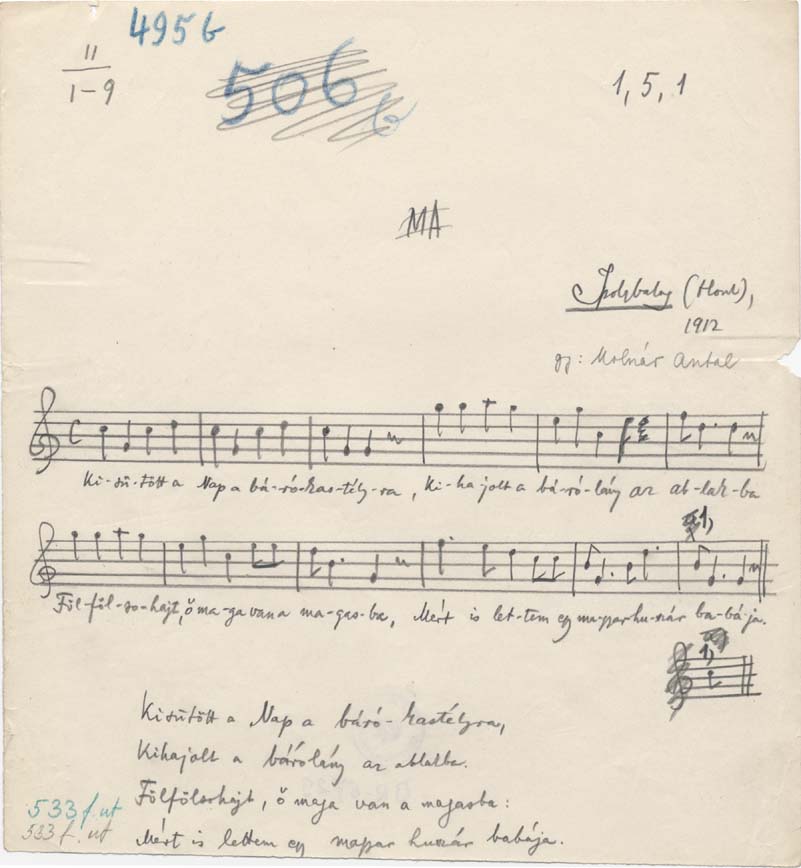 495 b
506 b
11
1-9
1, 5, 1
MA
Ipolybalog (Hont),
1912
gy: Molnár Antal
Ki-sü-tött a Nap a bá-ró-kas-tély-ra, Ki-ha-jolt a bá-ró-lány az ab-lak-ba
1,
Föl-föl-so-hajt, ő ma-ga van a ma-gas-ba, Mért is let-tem egy ma-gyar hu-szár ba-bá-ja.
1,
Kisütött a Nap a báró-kastélyra,
Kihajolt a bárólány az ablakba.
Fölfölsohajt, ő maga van a magasba:
Mért is lettem egy magyar huszár babája.
533 f. ut
533 f. ut